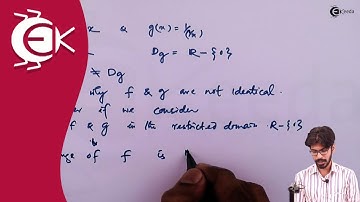 x & g(x) = 1/(1/x)
= Dg = R-{0}
≠ Dg
why f & g are not identical.
if we consider
f & g in the restricted domain R-{0}
of f is
Ekeeda